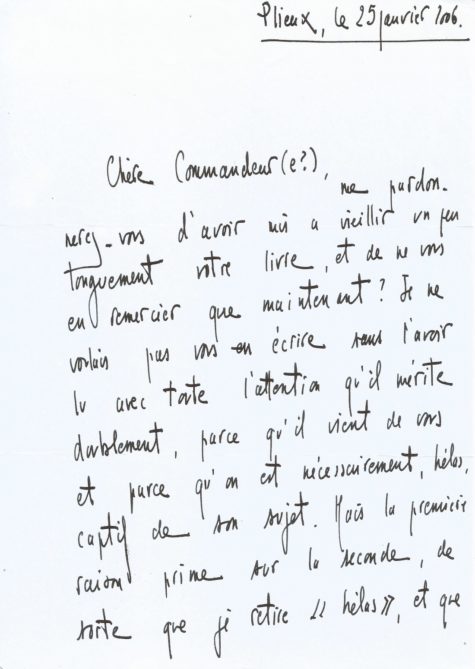 Plieux, le 25 janvier 2006.
Chère Commandeur(e?),
me pardon-
nerez-vous d'avoir mis à vieillir un peu
longuement votre livre, et de ne vous
en remercier que maintenant? Je ne
voulais pas vous en écrire sans l'avoir
lu avec toute l'attention qu'il mérite
doublement, parce qu'il vient de vous
et parce qu'on est nécessairement, hélas,
captif de son sujet. Mais la première
raison prime sur la seconde, de
sorte que je retire « hélas », et que